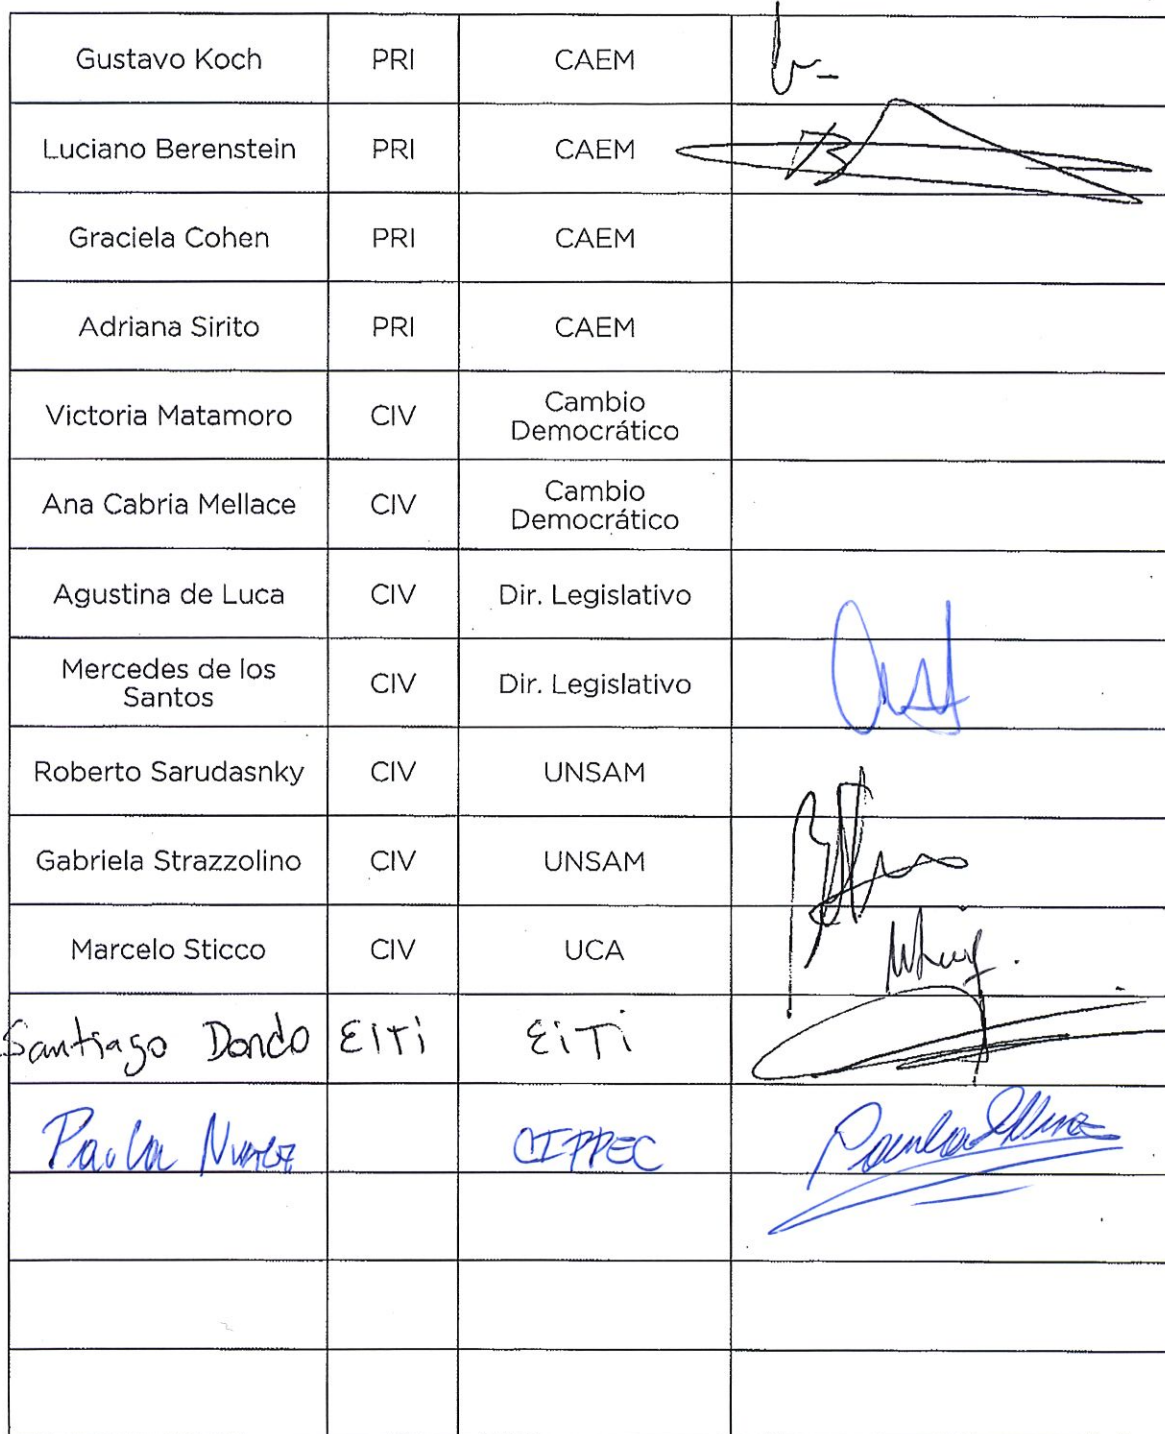 Gustavo Koch PRI CAEM
Luciano Berenstein PRI CAEM
Graciela Cohen PRI CAEM
Adriana Sirito PRI CAEM
Victoria Matamoro CIV Cambio
Democrático
Ana Cabria Mellace CIV Cambio
Democrático
Agustina de Luca CIV Dir. Legislativo
Mercedes de los
Santos CIV Dir. Legislativo
Roberto Sarudasnky CIV UNSAM
Gabriela Strazzolino CIV UNSAM
Marcelo Sticco CIV UCA
Santiago Dondo EITi EiTi
Paula Nuñez CIPPEC